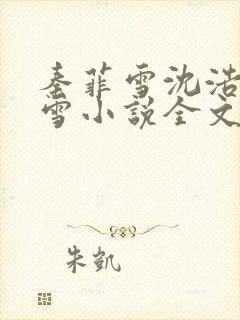 秦菲雪沈浩
雪小说全文
朱凯